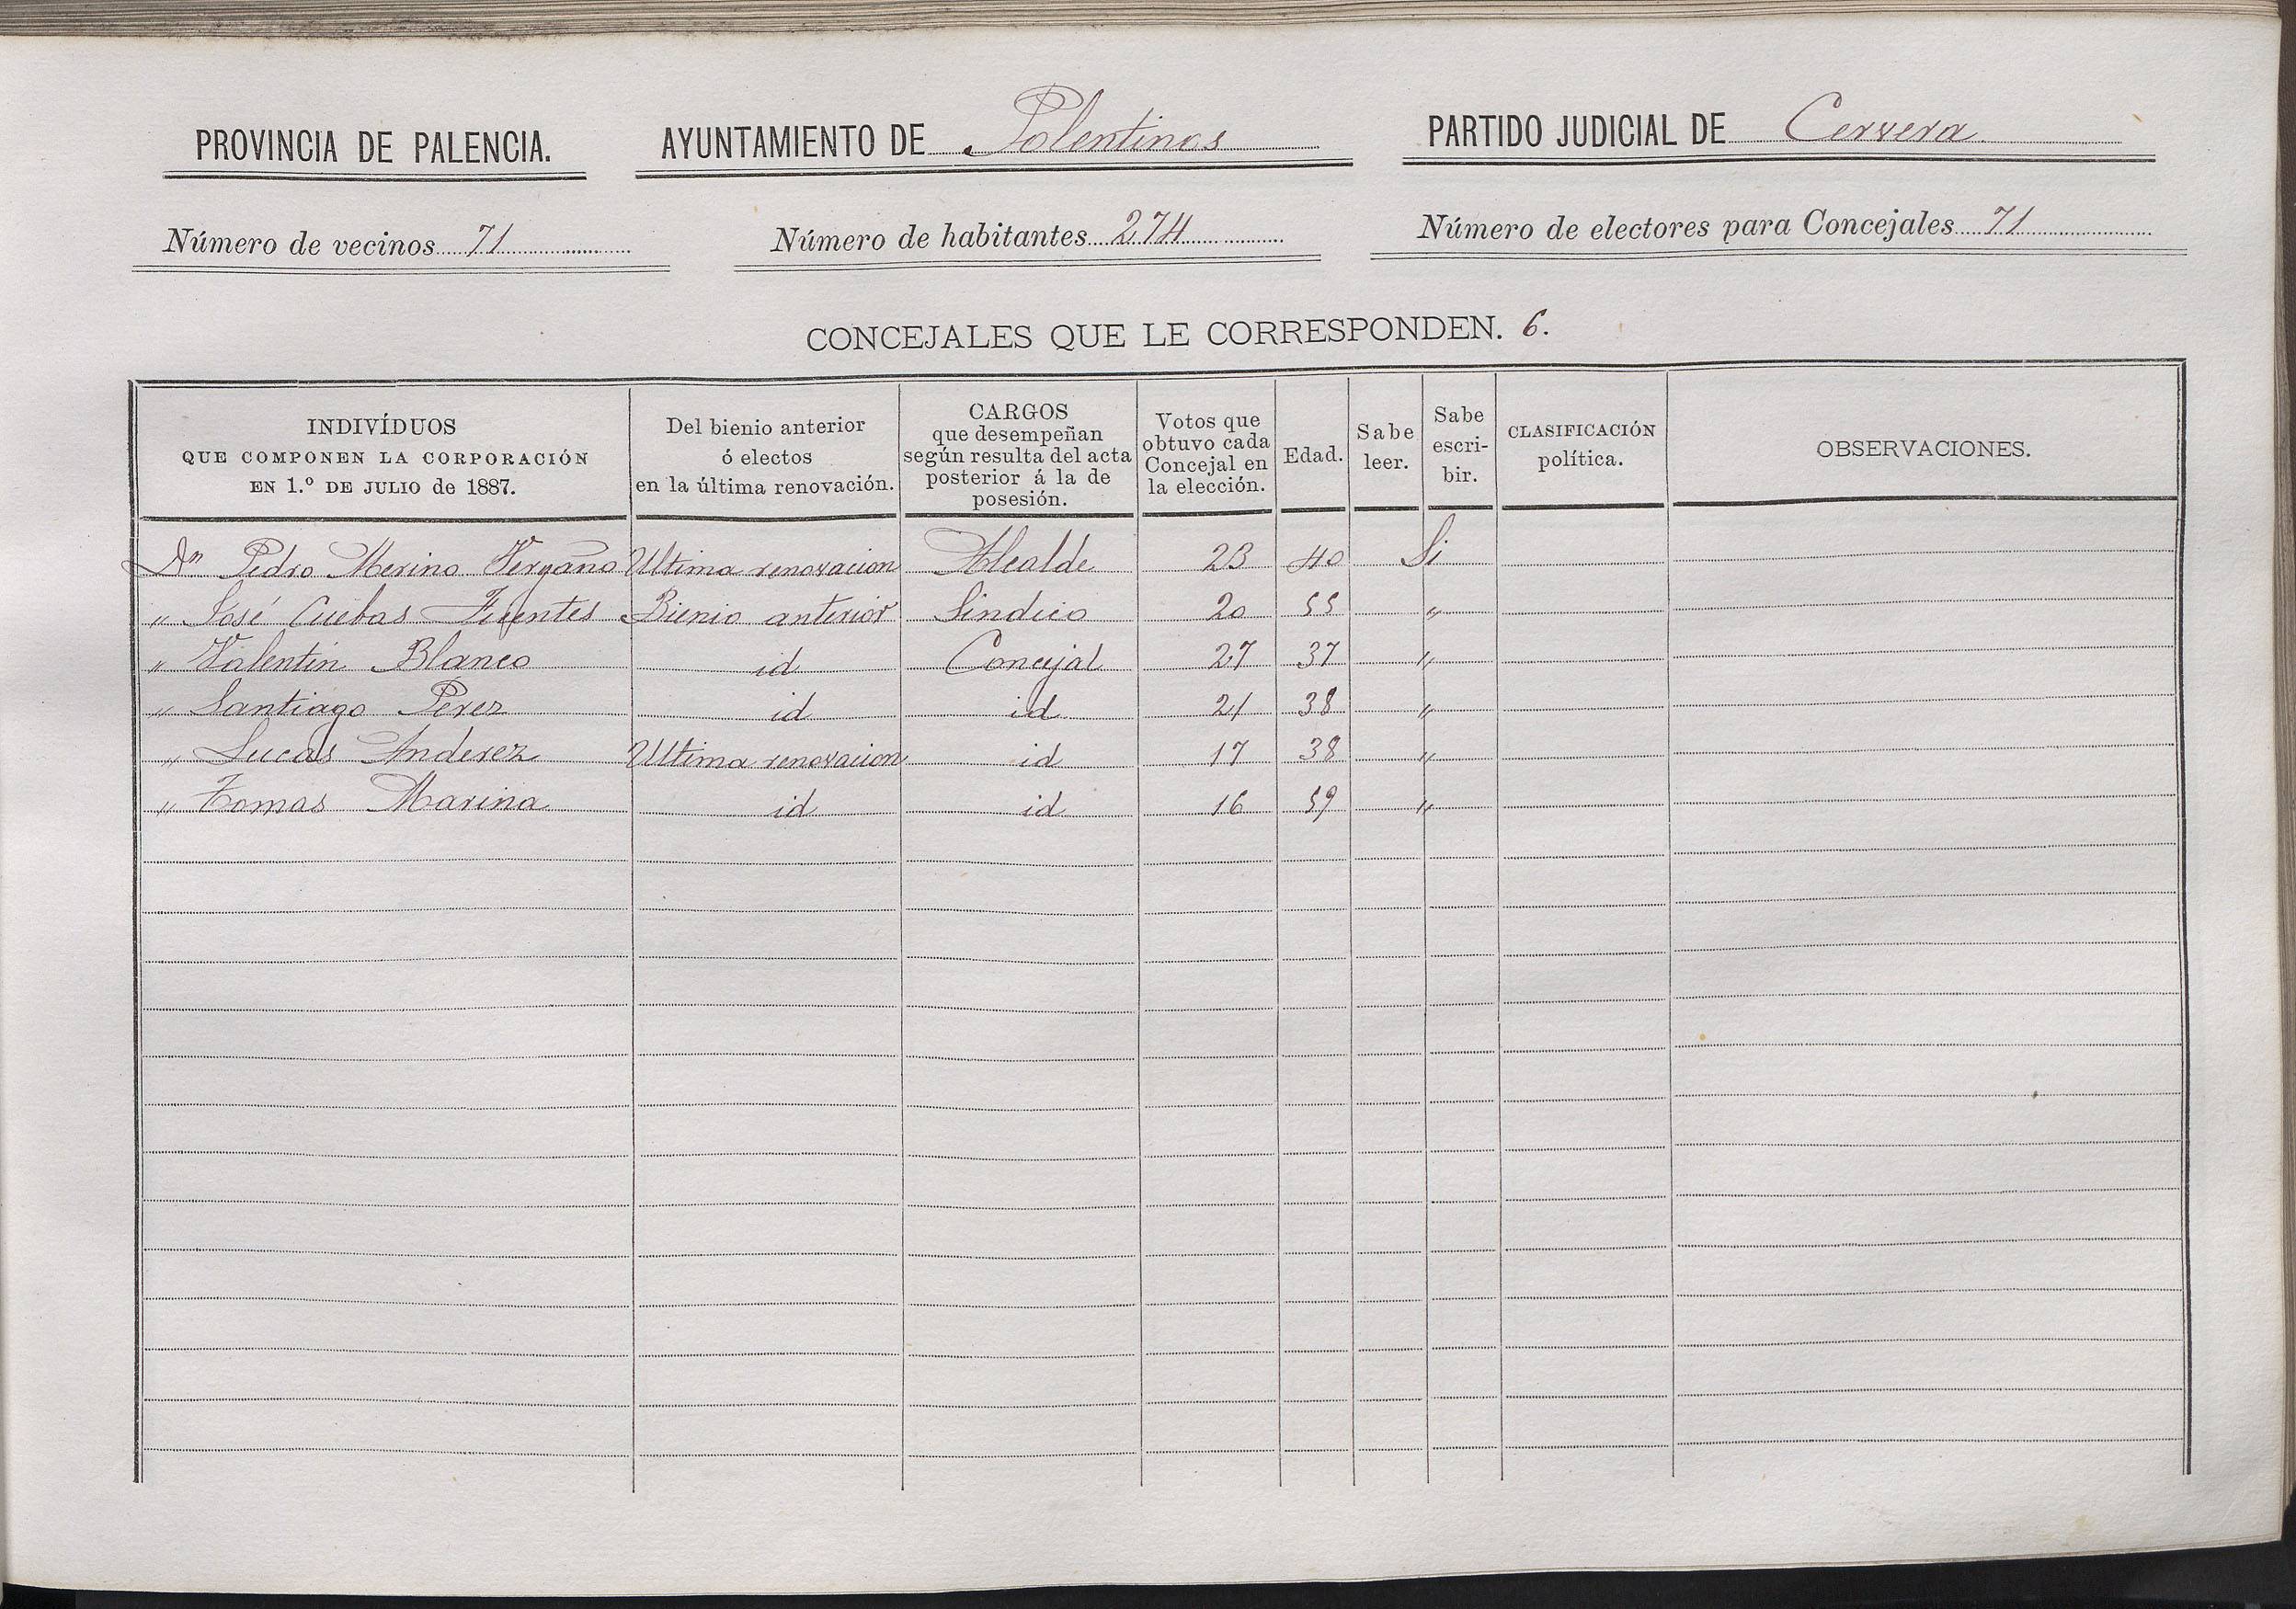 PROVINCIA DE PALENCIA. AYUNTAMIENTO DE Polentinos PARTIDO JUDICIAL DE Cervera
Número de vecinos 71 Número de habitantes 274 Número de electores para Concejales 71
CONCEJALES QUE LE CORRESPONDEN. 6.
INDIVÍDUOS QUE COMPONEN LA CORPORACIÓN EN 1.º DE JULIO de 1887. Del bienio anterior ó electos en la última renovación. CARGOS que desempeñan según resulta del acta posterior á la de posesión. Votos que obtuvo cada Concejal en la elección. Edad. Sabe leer. Sabe escribir. CLASIFICACIÓN política. OBSERVACIONES.
Dn Pedro Merino Vergaño Ultima renovacion Alcalde 23 40 Si
" José Cuebas Fuentes Bienio anterior Sindico 20 55 "
" Valentin Blanco id Concejal 27 37 "
" Santiago Perez id id 21 38 "
" Lucas Anderez Ultima renovacion id 17 38 "
" Tomas Marina id id 16 59 "